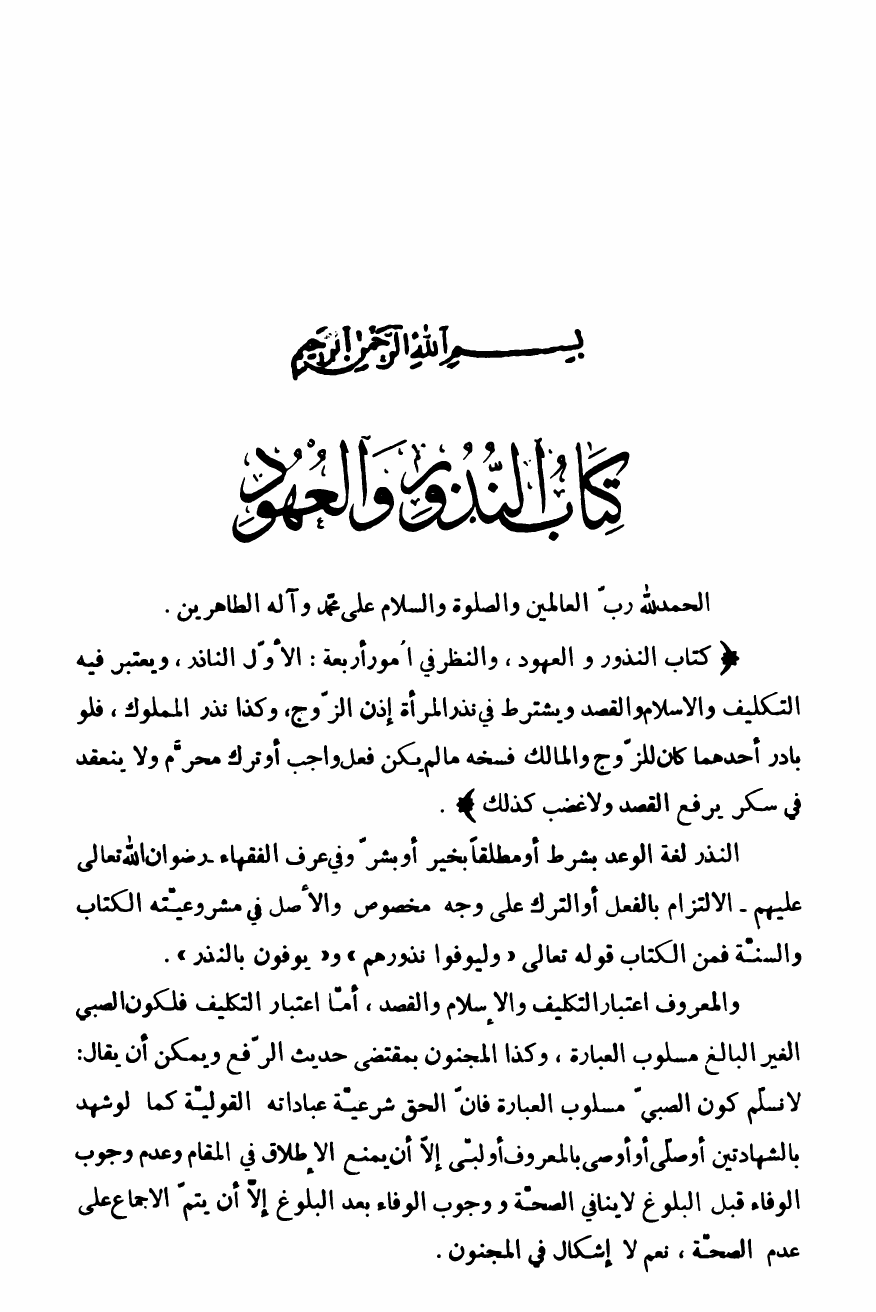 بسم الله الرحمن الرحيم
كتاب النذور والعهود
الحمدلله ربّ العالمين والصلوة والسلام على محمّد وآله الطاهرين .
﴿ كتاب النذور و العهود ، والنظر في اُمور أربعة : الأوّل الناذر ، ويعتبر فيه
التكليف والاسلام والقصد ويشترط في نذر المرأة إذن الزّوج، وكذا نذر المملوك ، فلو
بادر أحدهما كان للزّوج والمالك فسخه مالم يكن فعل واجب أوترك محرَّم ولا ينعقد
في سكر يرفع القصد ولاغضب كذلك ﴾ .
النذر لغة الوعد بشرط أومطلقاً بخير أوبشرّ وفي عرف الفقهاء ـ رضوان الله تعالى
عليهم ـ الالتزام بالفعل أوالترك على وجه مخصوص والأصل في مشروعيّته الكتاب
والسنّة فمن الكتاب قوله تعالى « وليوفوا نذورهم » و« يوفون بالنذر » .
والمعروف اعتبار التكليف والإسلام والقصد ، أمّا اعتبار التكليف فلكون الصبي
الغير البالغ مسلوب العبارة ، وكذا المجنون بمقتضى حديث الرّفع ويمكن أن يقال:
لانسلّم كون الصبيّ مسلوب العبارة فانّ الحق شرعيّة عباداته القوليّة كما لوشهد
بالشهادتين أوصلّى أوأوصى بالمعروف أولبّى إلاّ أن يمنع الإطلاق في المقام وعدم وجوب
الوفاء قبل البلوغ لاينافي الصحّة و وجوب الوفاء بعد البلوغ إلاّ أن يتمّ الاجماع على
عدم الصحّة ، نعم لا إشكال في المجنون .